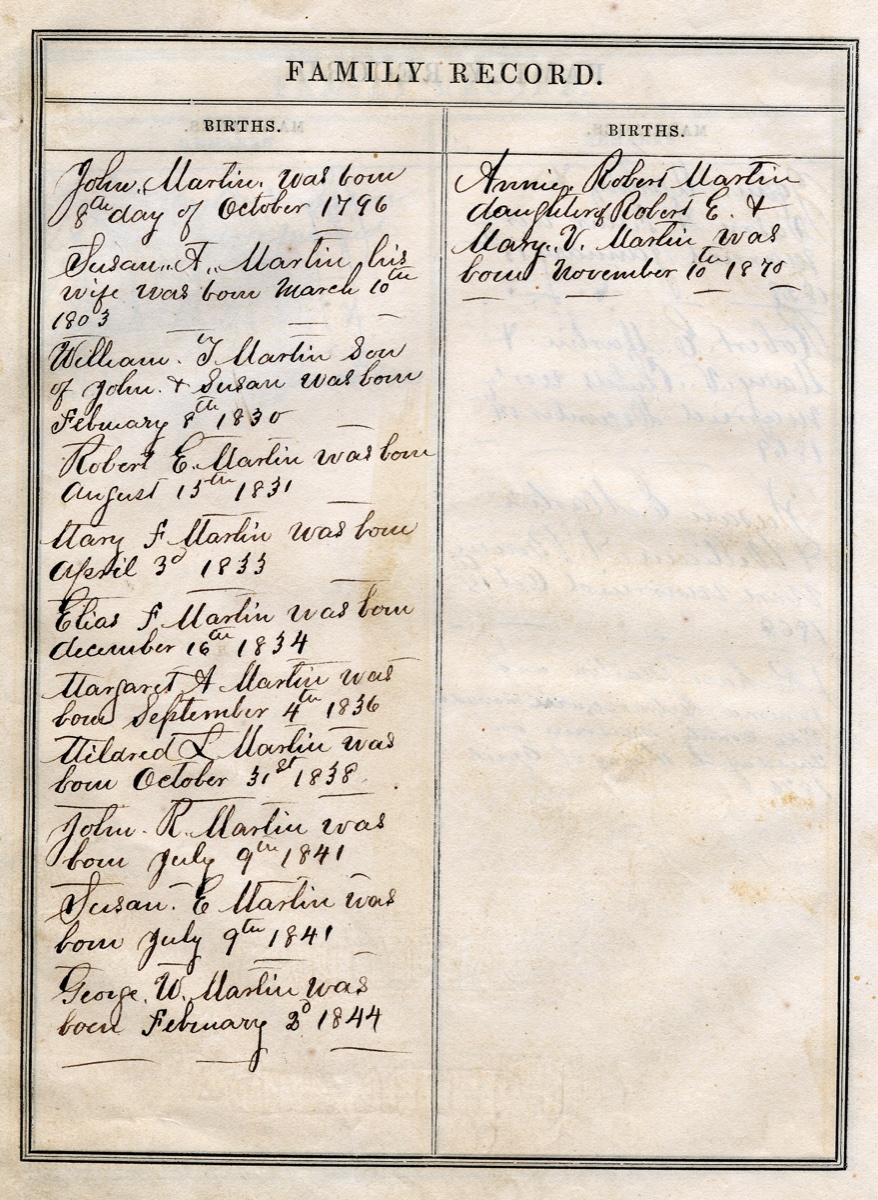 FAMILY RECORD.
BIRTHS.
John. Martin. was born
8th day of October 1796
Susan. A. Martin his
wife was born March 10th
1803
William. T Martin Son
of John. & Susan was born
February 8th 1830
Robert E. Martin was born
August 15th 1831
Mary F Martin was born
April 3d 1833
Elias F Martin was born
december 16th 1834
Margaret A Martin was
born September 4th 1836
Mildred L Martin was
born October 31st 1838.
John. R. Martin was
born July 9th 1841
Susan. E Martin was
born July 9th 1841
George. W. Martin was
born February 3d 1844
BIRTHS.
Annie. Robert Martin
daughter of Robert E. &
Mary. V. Martin was
born November 10th 1870